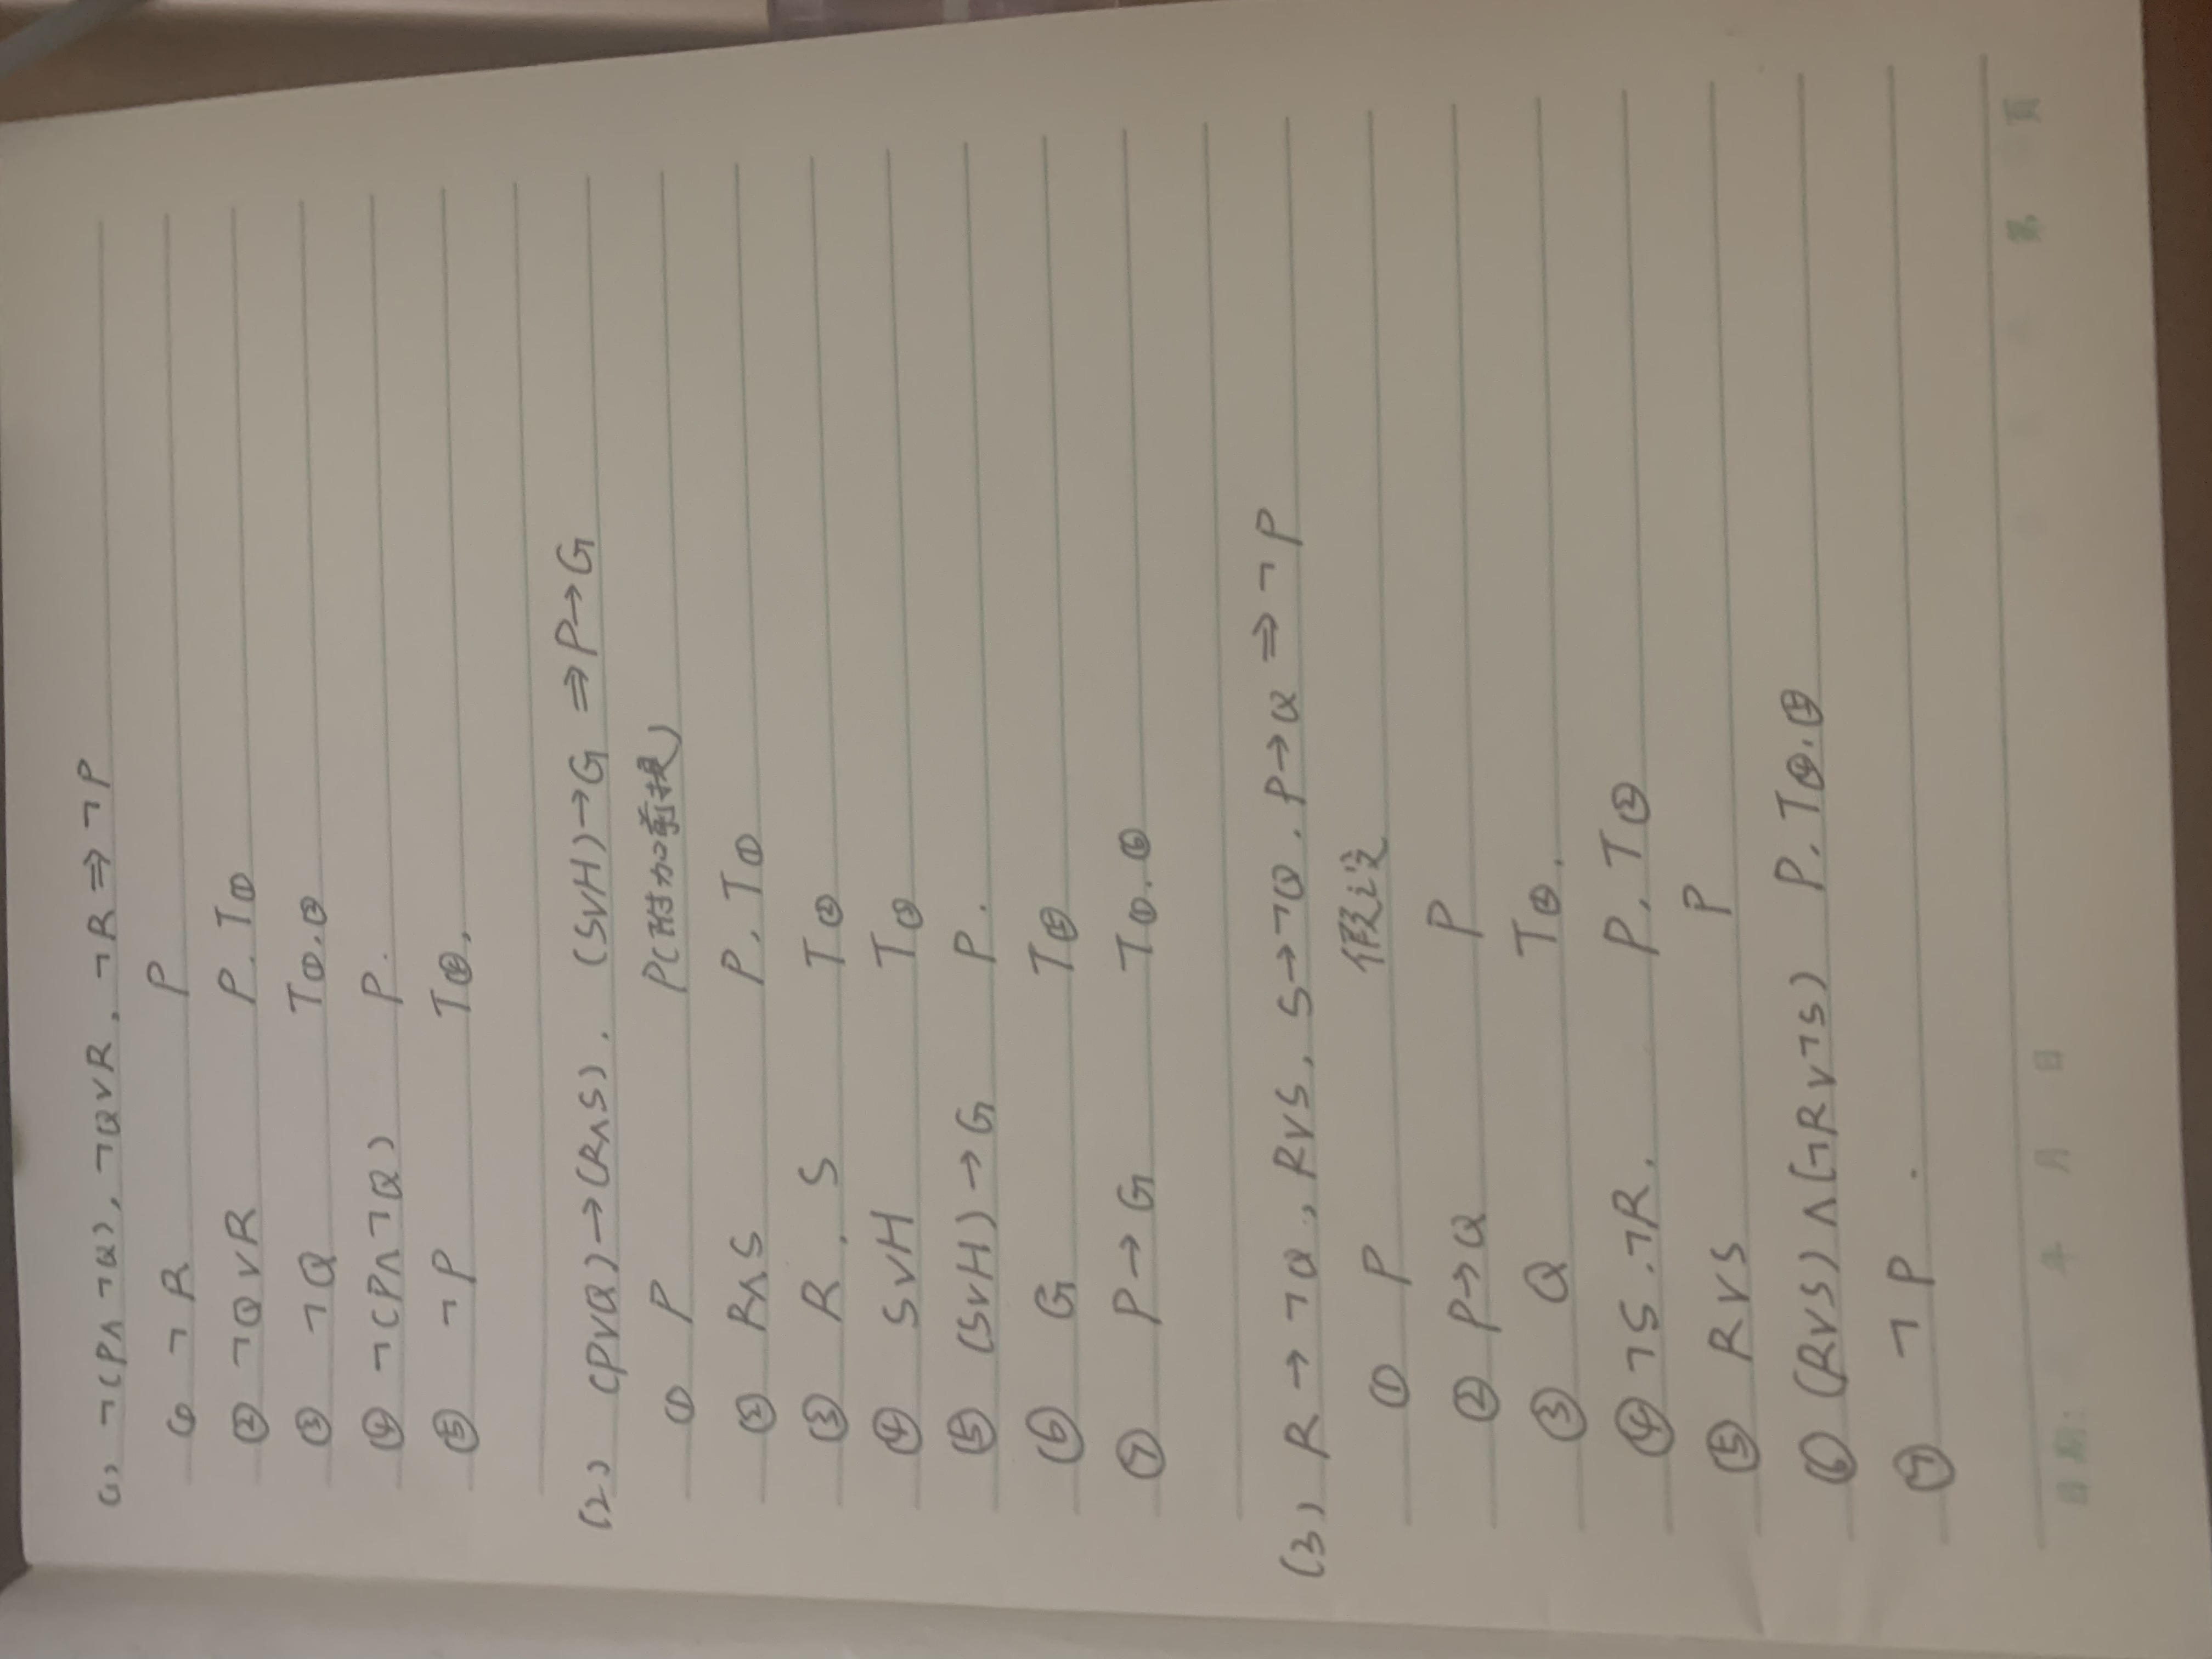 (1) ¬(P∧¬Q), ¬Q∨R, ¬R⇒¬P
① ¬R P
② ¬Q∨R P. T①
③ ¬Q T①.②
④ ¬(P∧¬Q) P.
⑤ ¬P T④,
(2) (P∨Q)→(R∧S). (S∨H)→G ⇒P→G
① P P(附加前提)
② R∧S P, T①
③ R, S T②
④ S∨H T③
⑤ (S∨H)→G P.
⑥ G T⑤
⑦ P→G T①.⑥
(3) R→¬Q, R∨S, S→¬Q. P→Q ⇒¬P
① P 假设
② P→Q P
③ Q T②.
④ ¬S.¬R. P, T②
⑤ R∨S P
⑥ (R∨S)∧(¬R∨¬S) P. T④.⑤
⑦ ¬P.
日期: 年 月 日 第 页